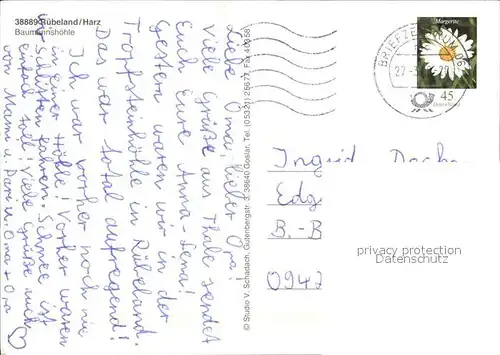 38889 Rübeland/Harz
Baumannshöhle
Liebe Oma, lieber Opa!
Viele Grüße aus Thale sendet
Euch Eure Anna-Lena!
Gestern waren wir in der
Tropfsteinhöhle in Rübeland.
Das war total aufregend!
Ich war vorher noch nie
in einer Höhle! Vorher waren
wir Schlitten fahren. Schnee ist
einfach toll! Viele Grüße auch
von Mami u. Papa u. Oma + Opa
© Studio V. Schadach, Gutenbergstr. 3, 38640 Goslar, Tel. (05321) 26677, Fax 40356
BRIEFZENTRUM 06
Margerite
45
Deutschland
Ingrid
Edg
B.-B
0942
privacy protection
Datenschutz